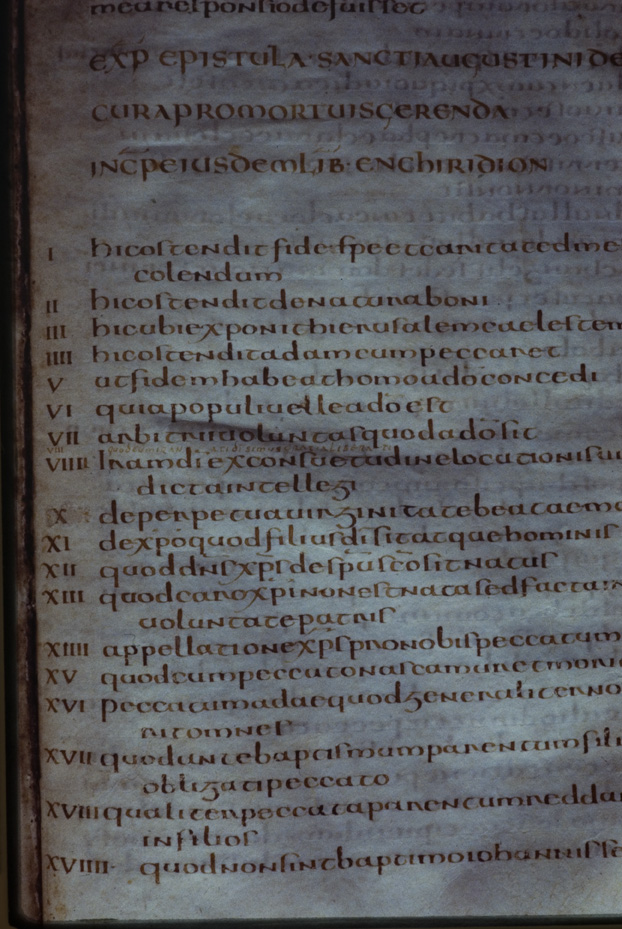 EXP EPISTULA SANCTI AUGUSTINI DE
CURA PRO MORTUIS GERENDA
INCP EIUSDEM LIB ENCHIRIDION
I hic ostendit fide spe et caritate dm e
colendum
II hic ostendit de natura boni
III hic ubi exponit hierusalem caelestem
IIII hic ostendit adam cum peccaret
V ut fidem habeat homo a do concedi
VI quia populi uelle a do est
VII arbitrii uoluntas quod a do sit
VIII
VIIII Iram di ex consuetudine locationis
dicta intellegi
X de perpetua uirginitate beatae m
XI de xpo quod filius di sit atque hominis
XII quod dns xps de spu sco sit natus
XIII quod caro xpi non est nata sed factura
uoluntate patris
XIIII appellatione xps pro nobis peccatum
XV quod cum peccato nascamur et
XVI peccatum adae quod generaliter no
rit omnes
XVII quod ante baptismum parentum fili
obligati peccato
XVIII qualiter peccata parentum reddan
in filios
XVIIII quod non sint baptimo iohannis